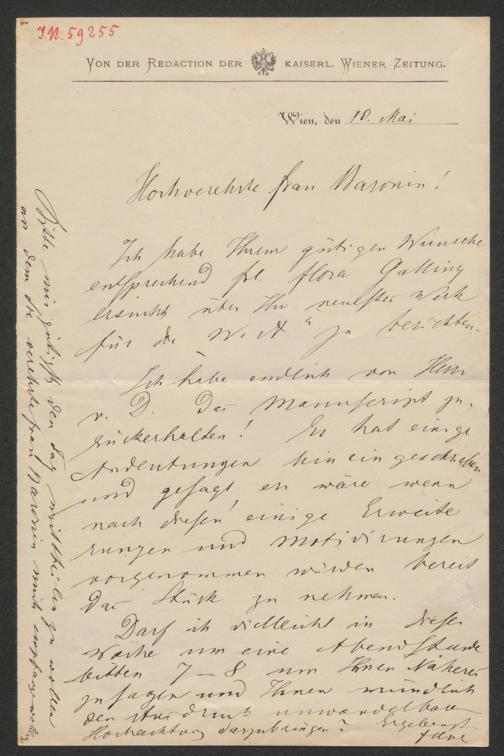 J.N. 59255
VON DER REDACTION DER KAISERL. WIENER ZEITUNG.
Wien, den 10. Mai
Hochverehrte Frau Baronin!
Ich habe Ihrem gütigen Wunsche
entsprechend Frl. Flora Galliny
ersucht über Ihr neuestes Werk
für die W. A" zu berichten.
Ich habe endlich von Herrn
v. D. das Manuscript zu-
rückerhalten! Er hat einige
Andeutungen hineingeschrieben
und gesagt er wäre wenn
nach diesen einige Erweite
rungen und Motivirungen
vorgenommen würden bereit
das Stück zu nehmen.
Darf ich vielleicht in dieser
Woche um eine Abendstunde
bitten 7–8 um Ihnen Näheres
zu sagen und Ihnen mündlich
den Ausdruck unwandelbarer
Hochachtung darzubringen? Ergebenst
Bitte mir gütigst den Tag mittheilen zu wollen
an dem Sie verehrte Frau Baronin mich empfangen wollen